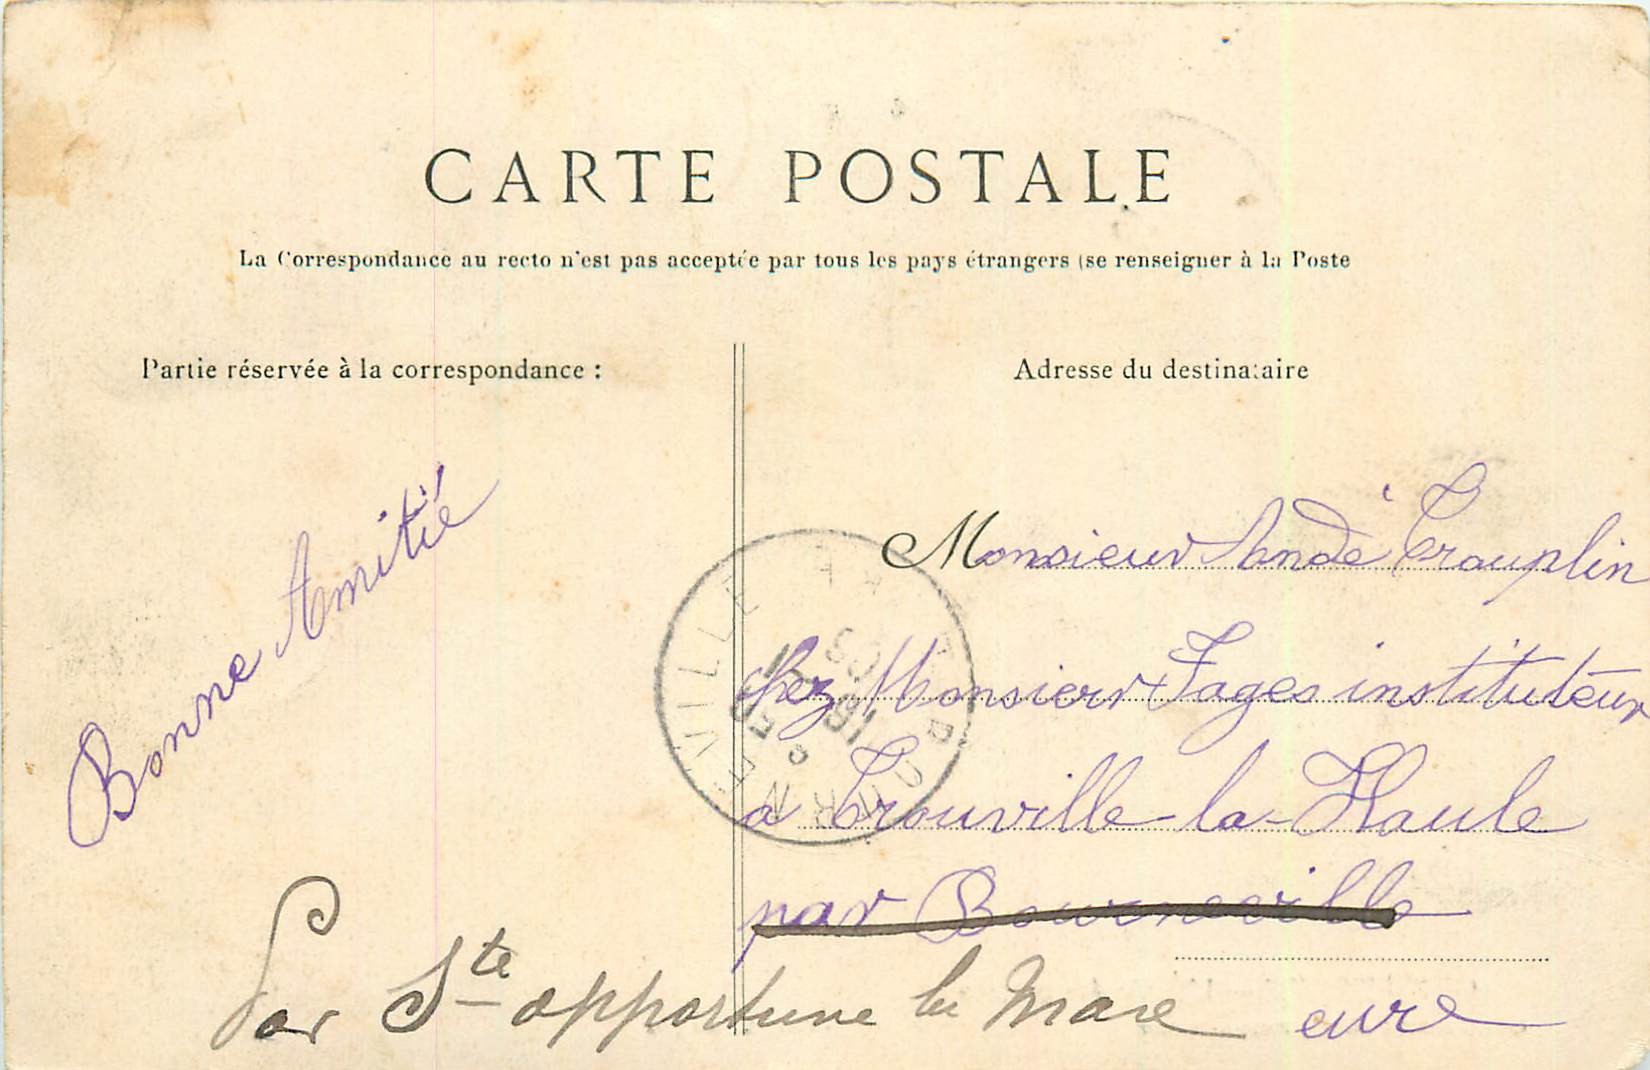 CARTE POSTALE
La Correspondance au recto n'est pas acceptée par tous les pays étrangers (se renseigner à la Poste
Partie réservée à la correspondance :
Adresse du destinataire
Bonne Amitié
Monsieur Andè Trouplin
chez Monsieur Fages instituteur
à Trouville-la-Haule
par Bourneville
Par Ste opportune la Mare eure
BOURNEVILLE